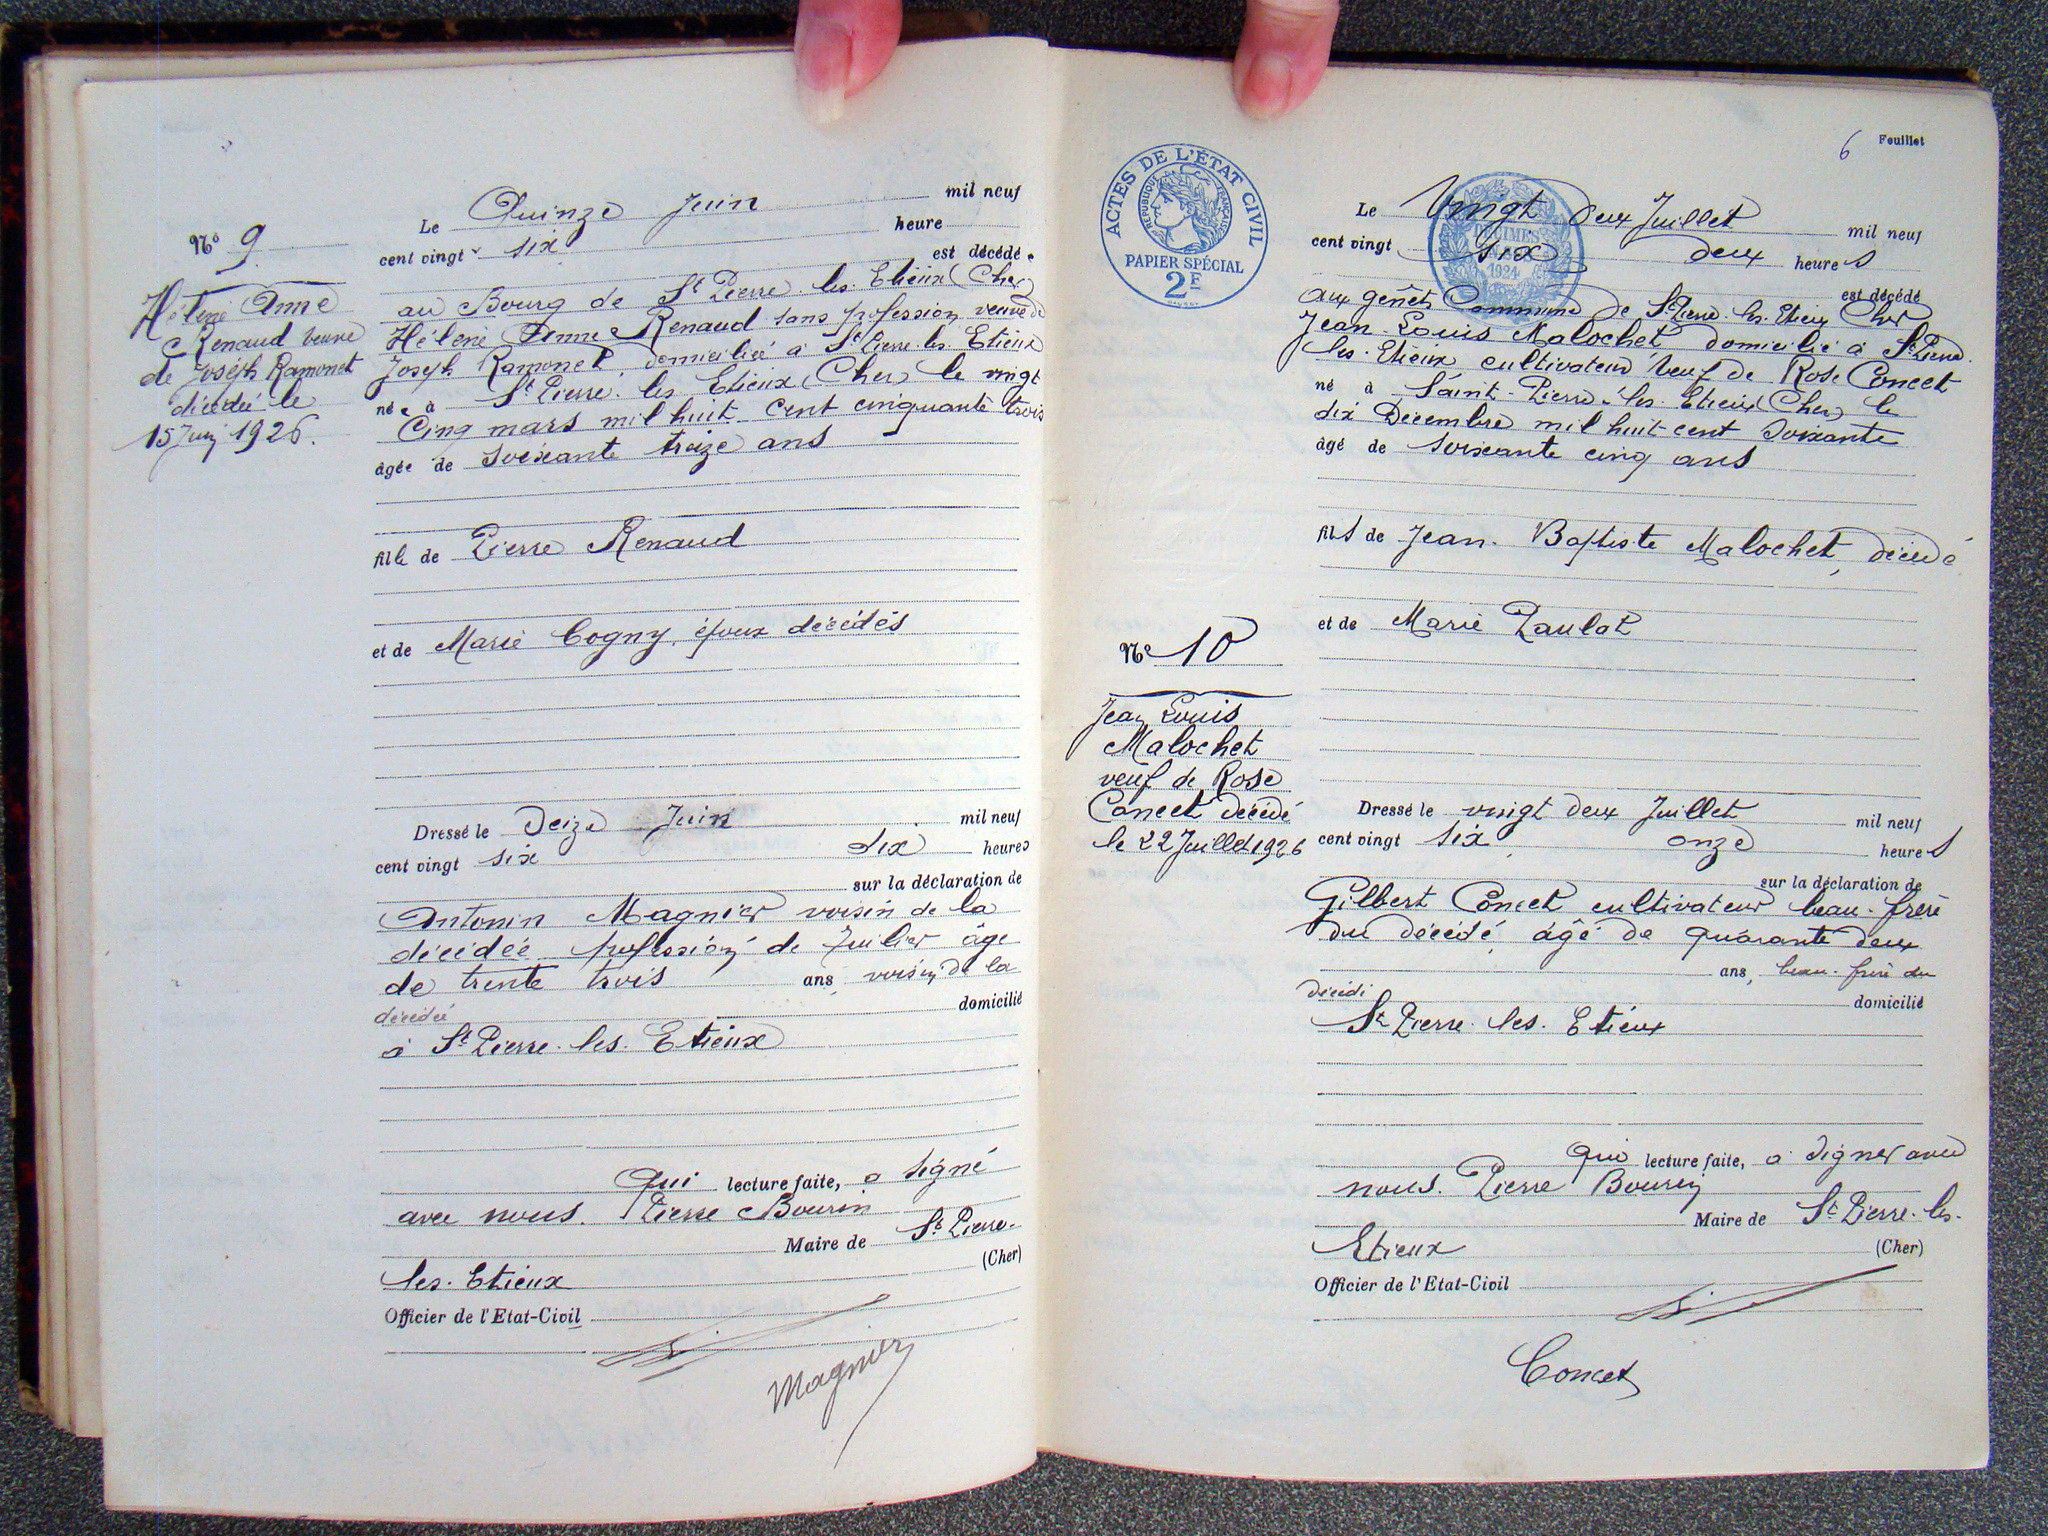 Nº 9
Hélène Anne
Renaud veuve
de Joseph Ramonet
décédée le
15 Juin 1926.
Le Quinze Juin mil neuf
cent vingt six heure
est décédée
au Bourg de St Pierre les Etieux (Cher)
Hélène Anne Renaud sans profession veuve de
Joseph Ramonet, domiciliée à St Pierre les Etieux
née à St Pierre les Etieux (Cher) le vingt
Cinq mars mil huit cent cinquante trois
âgée de soixante treize ans
fille de Pierre Renaud
et de Marie Cogny, époux décédés
Dressé le Seize Juin mil neuf
cent vingt six dix heures
sur la déclaration de
Antonin Magnier voisin de la
décédée profession de âge
de trente trois ans voisin de la
décédée domicilié
à St Pierre les Etieux
qui lecture faite, a signé
avec nous. Pierre Bourin
Maire de St Pierre-
les-Etieux (Cher)
Officier de l'Etat-Civil
Magnier
6 Feuillet
ACTES DE L'ÉTAT CIVIL
RÉPUBLIQUE FRANÇAISE
PAPIER SPÉCIAL
2F
DÉCIMES
EN SUS
1924
Le Vingt deux Juillet mil neuf
cent vingt six deux heures
est décédé
aux genêts Commune de St Pierre les Etieux Cher
Jean Louis Malochet domicilié à St Pierre
les-Etieux cultivateur veuf de Rose Concet
né à Saint-Pierre-les-Etieux (Cher) le
dix Décembre mil huit cent soixante
âgé de soixante cinq ans
fils de Jean-Baptiste Malochet, décédé
et de Marie Paulat
Nº 10
Jean Louis
Malochet
veuf de Rose
Concet décédé
le 22 Juillet 1926
Dressé le vingt deux Juillet mil neuf
cent vingt six onze heures
sur la déclaration de
Gilbert Concet cultivateur beau-frère
du décédé, âgé de quarante deux
ans, beau-frère du
décédé domicilié
St Pierre-les-Etieux
Qui lecture faite, a signer avec
nous. Pierre Bourin
Maire de St Pierre-les-
Etieux (Cher)
Officier de l'Etat-Civil
Concet